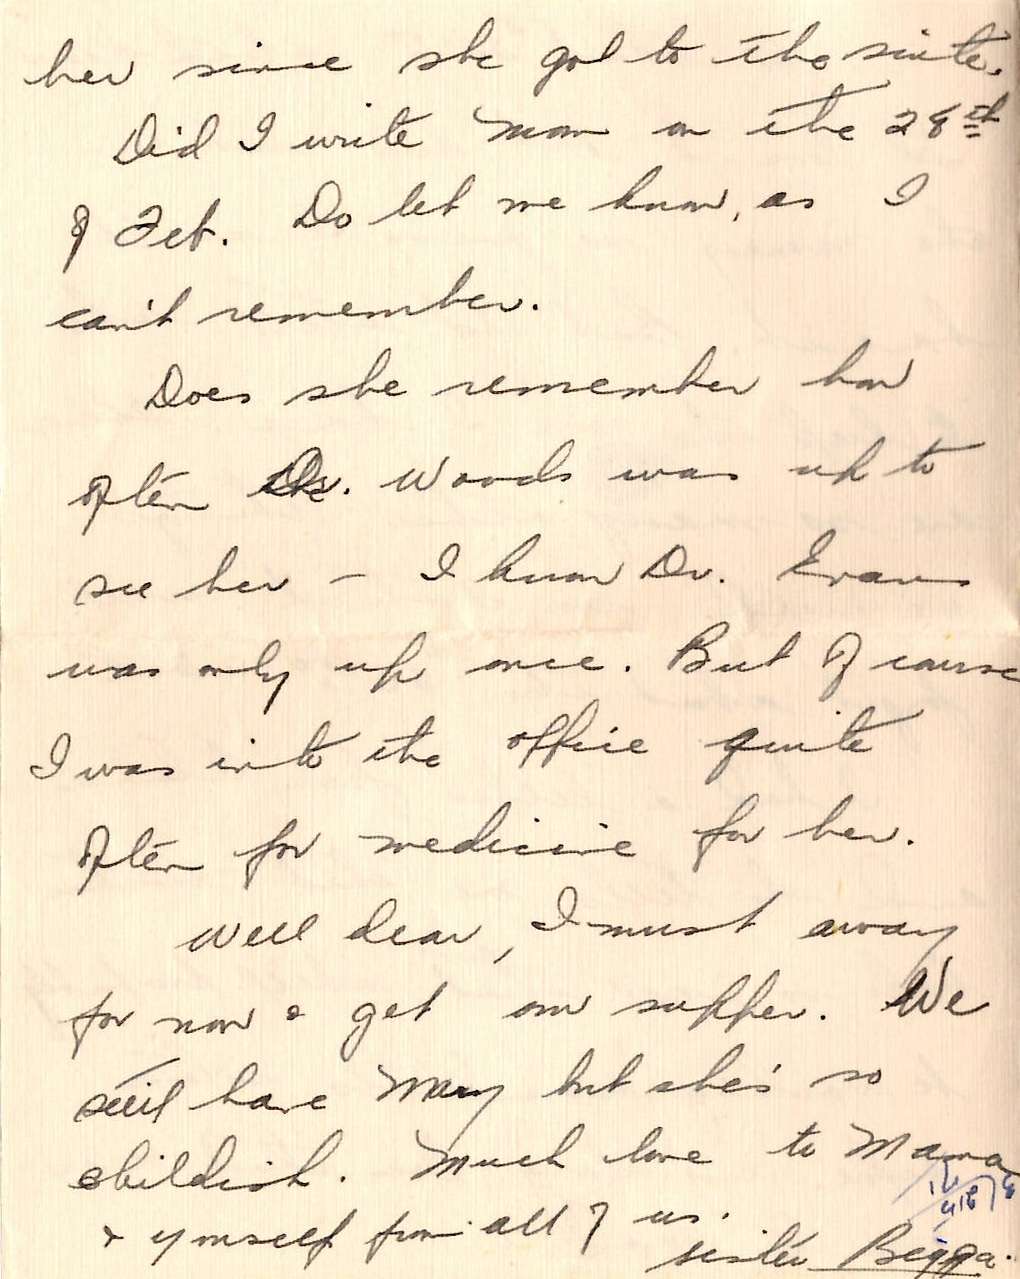 her since she got to the suite.
Did I write mom on the 28th
of Feb. Do let me know, as I
can't remember.
Does she remember how
often Dr. Woods was up to
see her – I know Dr. Evans
was only up once. But of course
I was into the office quite
often for medicine for her.
Well dear, I must away
for now & get our supper. We
still have Mary but she's so
childish. Much love to Mama
& yourself from all of us.
sister Begga.